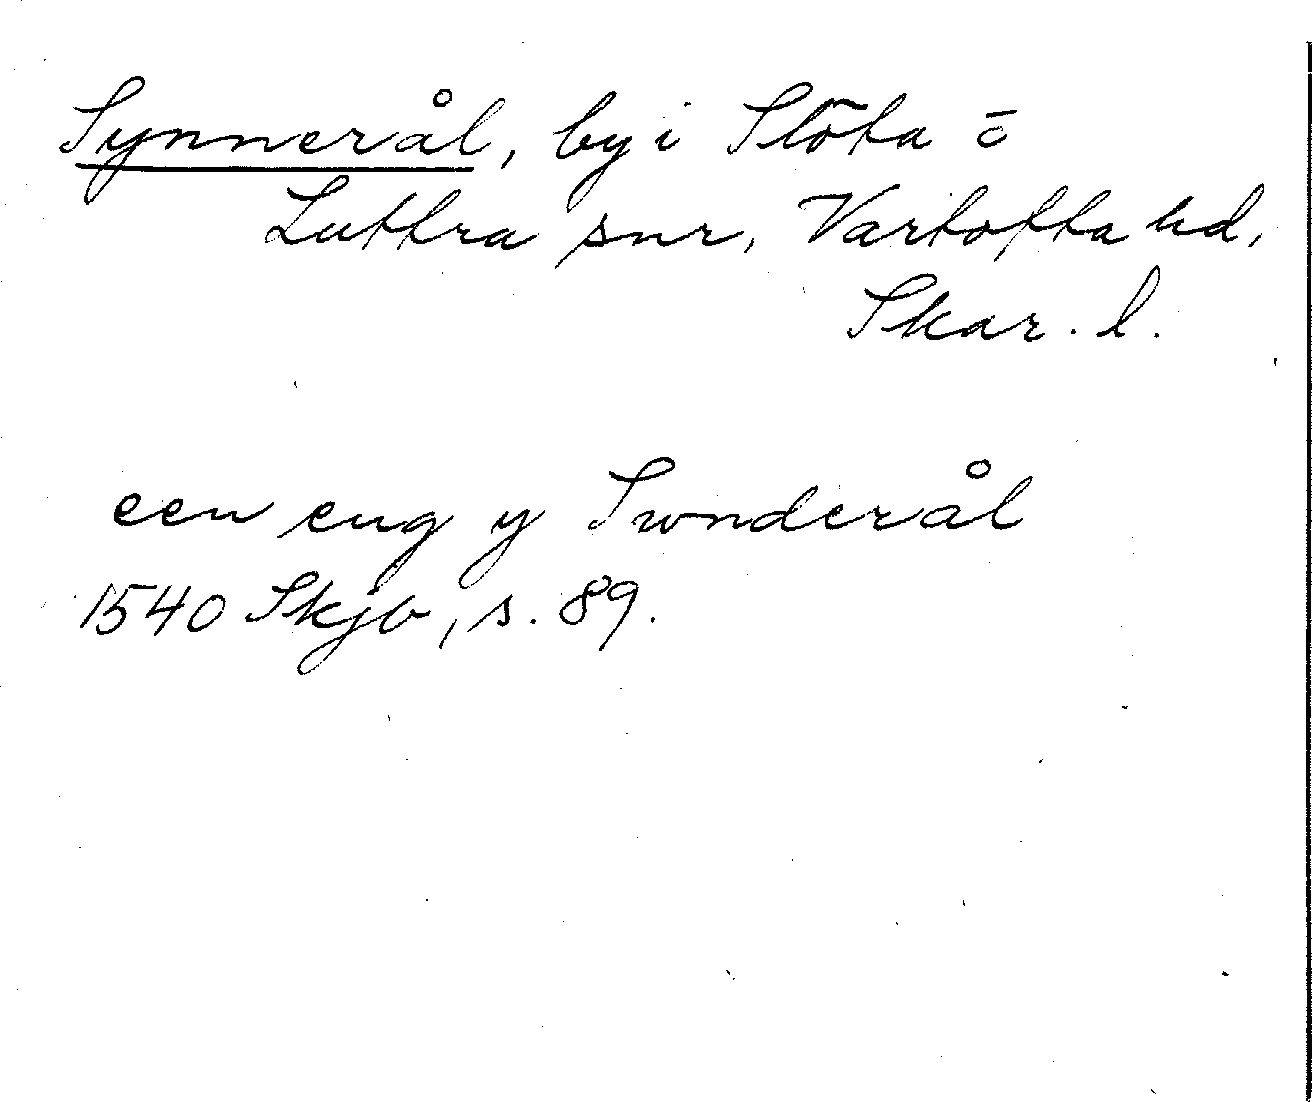 Synnerål, by i Slöta o
Luttra snr, Vartofta hd,
Skar. l.
een eng y Swnderål
1540 Skjb, s. 89.